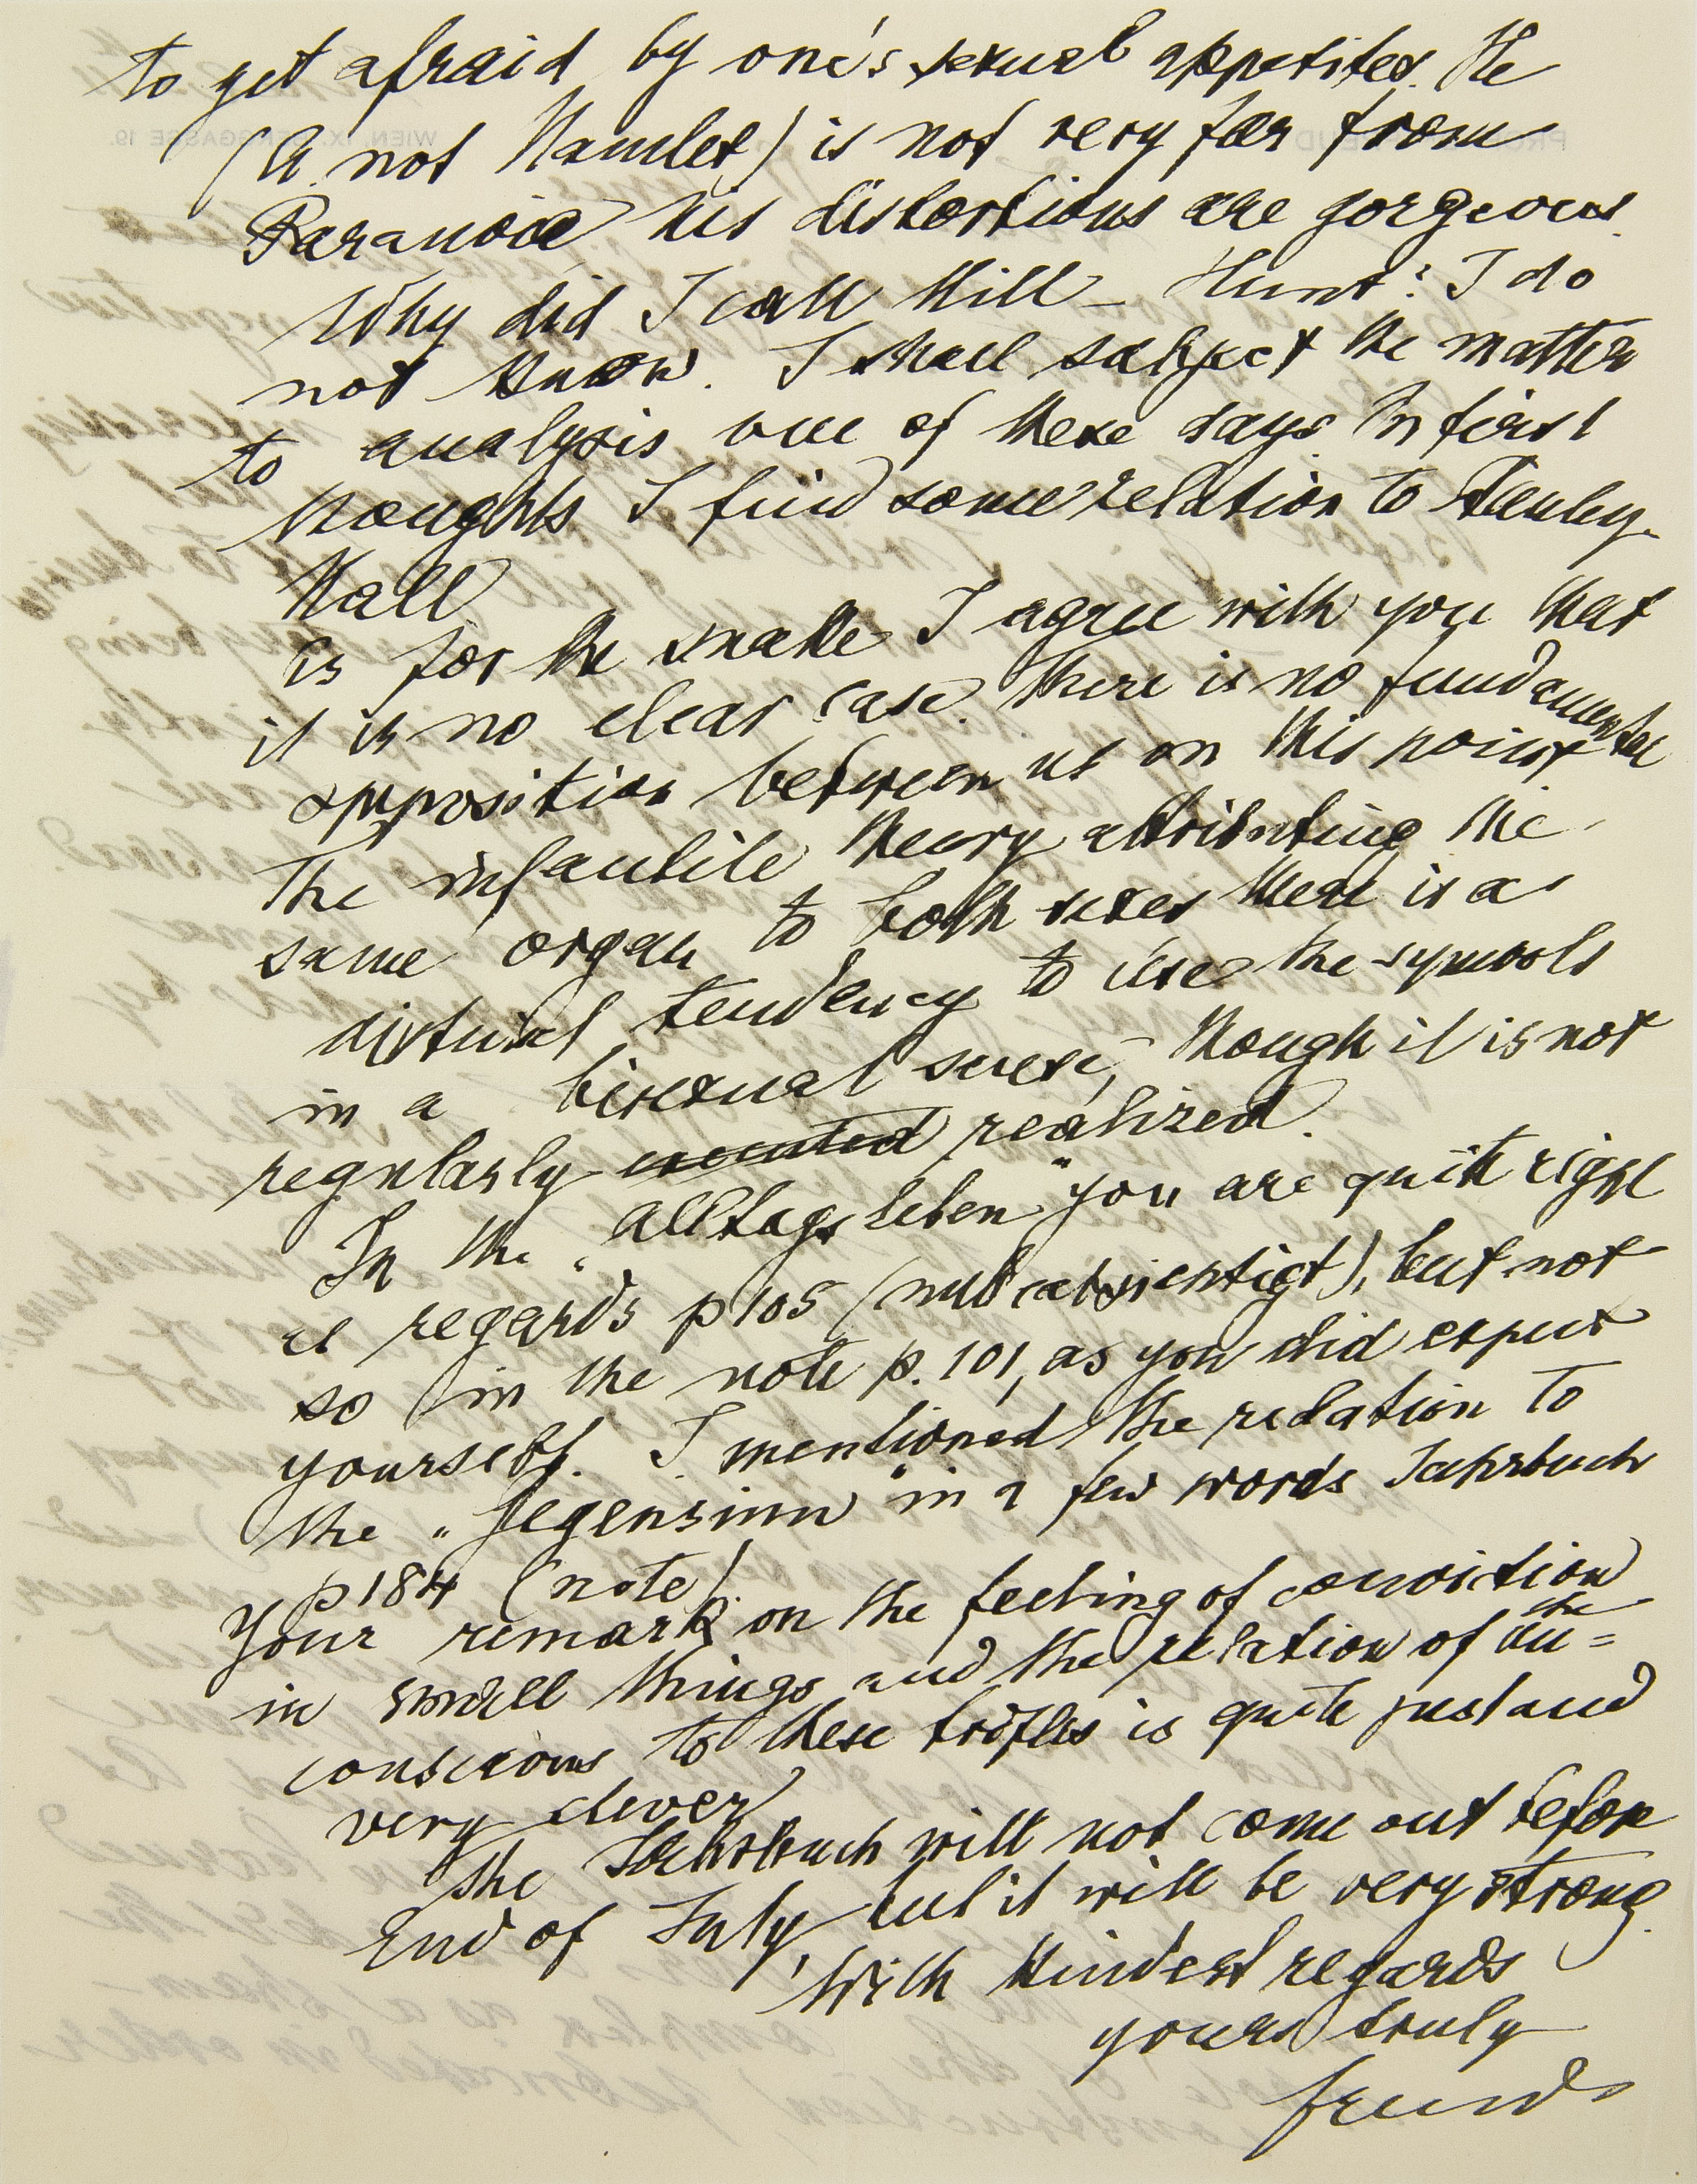 to get afraid by one's sexual appetites. He
(A. not Hamlet) is not very far from
Paranoia his distortions are gorgeous.
Why did I call Hill – Hunt? I do
not know. I shall subject the matter
to analysis one of these days. In first
thoughts I find some relation to Stanley
Hall
As for the snake I agree with you that
it is no clear case. There is no fundamental
opposition between us on this point
The infantile theory attributing the
same organ to both sexes there is a
virtual tendency to use the symbols
in a bisexual sense, though it is not
regularly executed realized.
In the „Alltagsleben" you are quite right
as regards p 105 (nub), but not
so in the note p. 101, as you did expect
yourself. I mentioned the relation to
the „Gegensinn" in a few words Jahrbuch
p 184 (note).
Your remark on the feeling of conviction
in small things and the relation of the un=
conscious to these trifles is quite just and
very clever
The Jahrbuch will not come out before
End of July, but it will be very strong.
With kindest regards
yours truly
Freud
WIEN, IX. BERGGASSE 19.